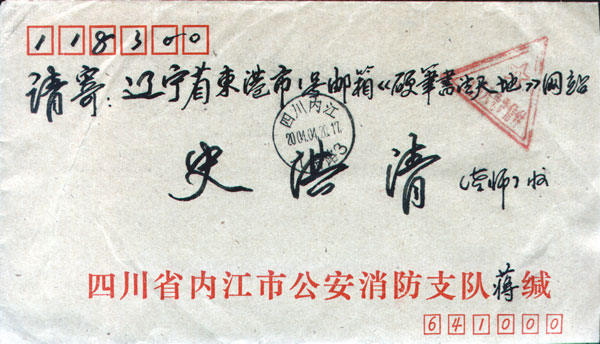 118300
请寄：辽宁省东港市1号邮箱《硬筆書法天地》网站
四川内江
2004.04.20.17
史洪清（老师）收
四川省内江市公安消防支队蒋缄
641000